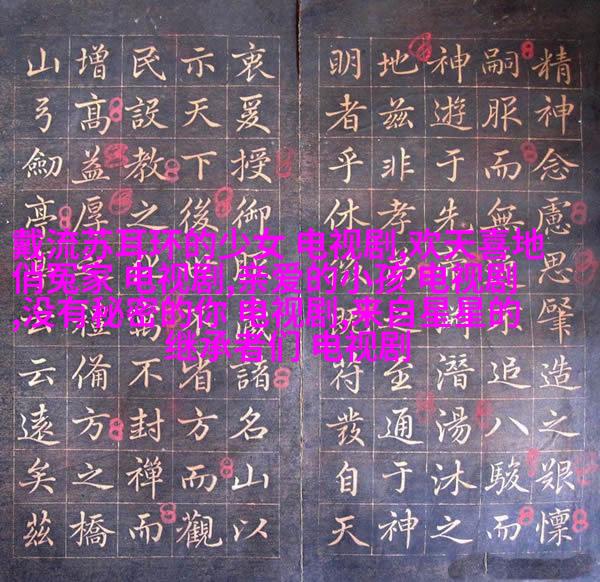 精神念慮思肇造之艱懍
嗣服而無追八駿而
神遊于先潛湯沐之
地茲非孝至通于神
明者乎休符發自天
衷爰授御諸名山以
示天下後省方而觀
民設教之不封禪而
增高益厚備方之橋
山弓劍云遠矣茲
戴流苏耳环的少女 电视剧,欢天喜地
俏冤家 电视剧,亲爱的小孩 电视剧
,没有秘密的你 电视剧,来自星星的
继承者们 电视剧